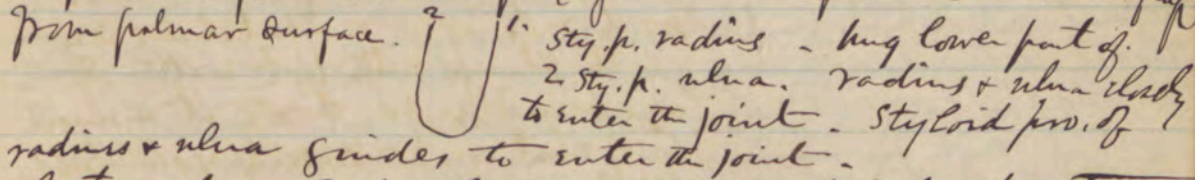 from palmar surface. 2 1. Sty. p. radius - hug lower part of
2 Sty. p. ulna. radius & ulna closely
to enter the joint - Styloid pro. of
radius & ulna guides to enter the joint -